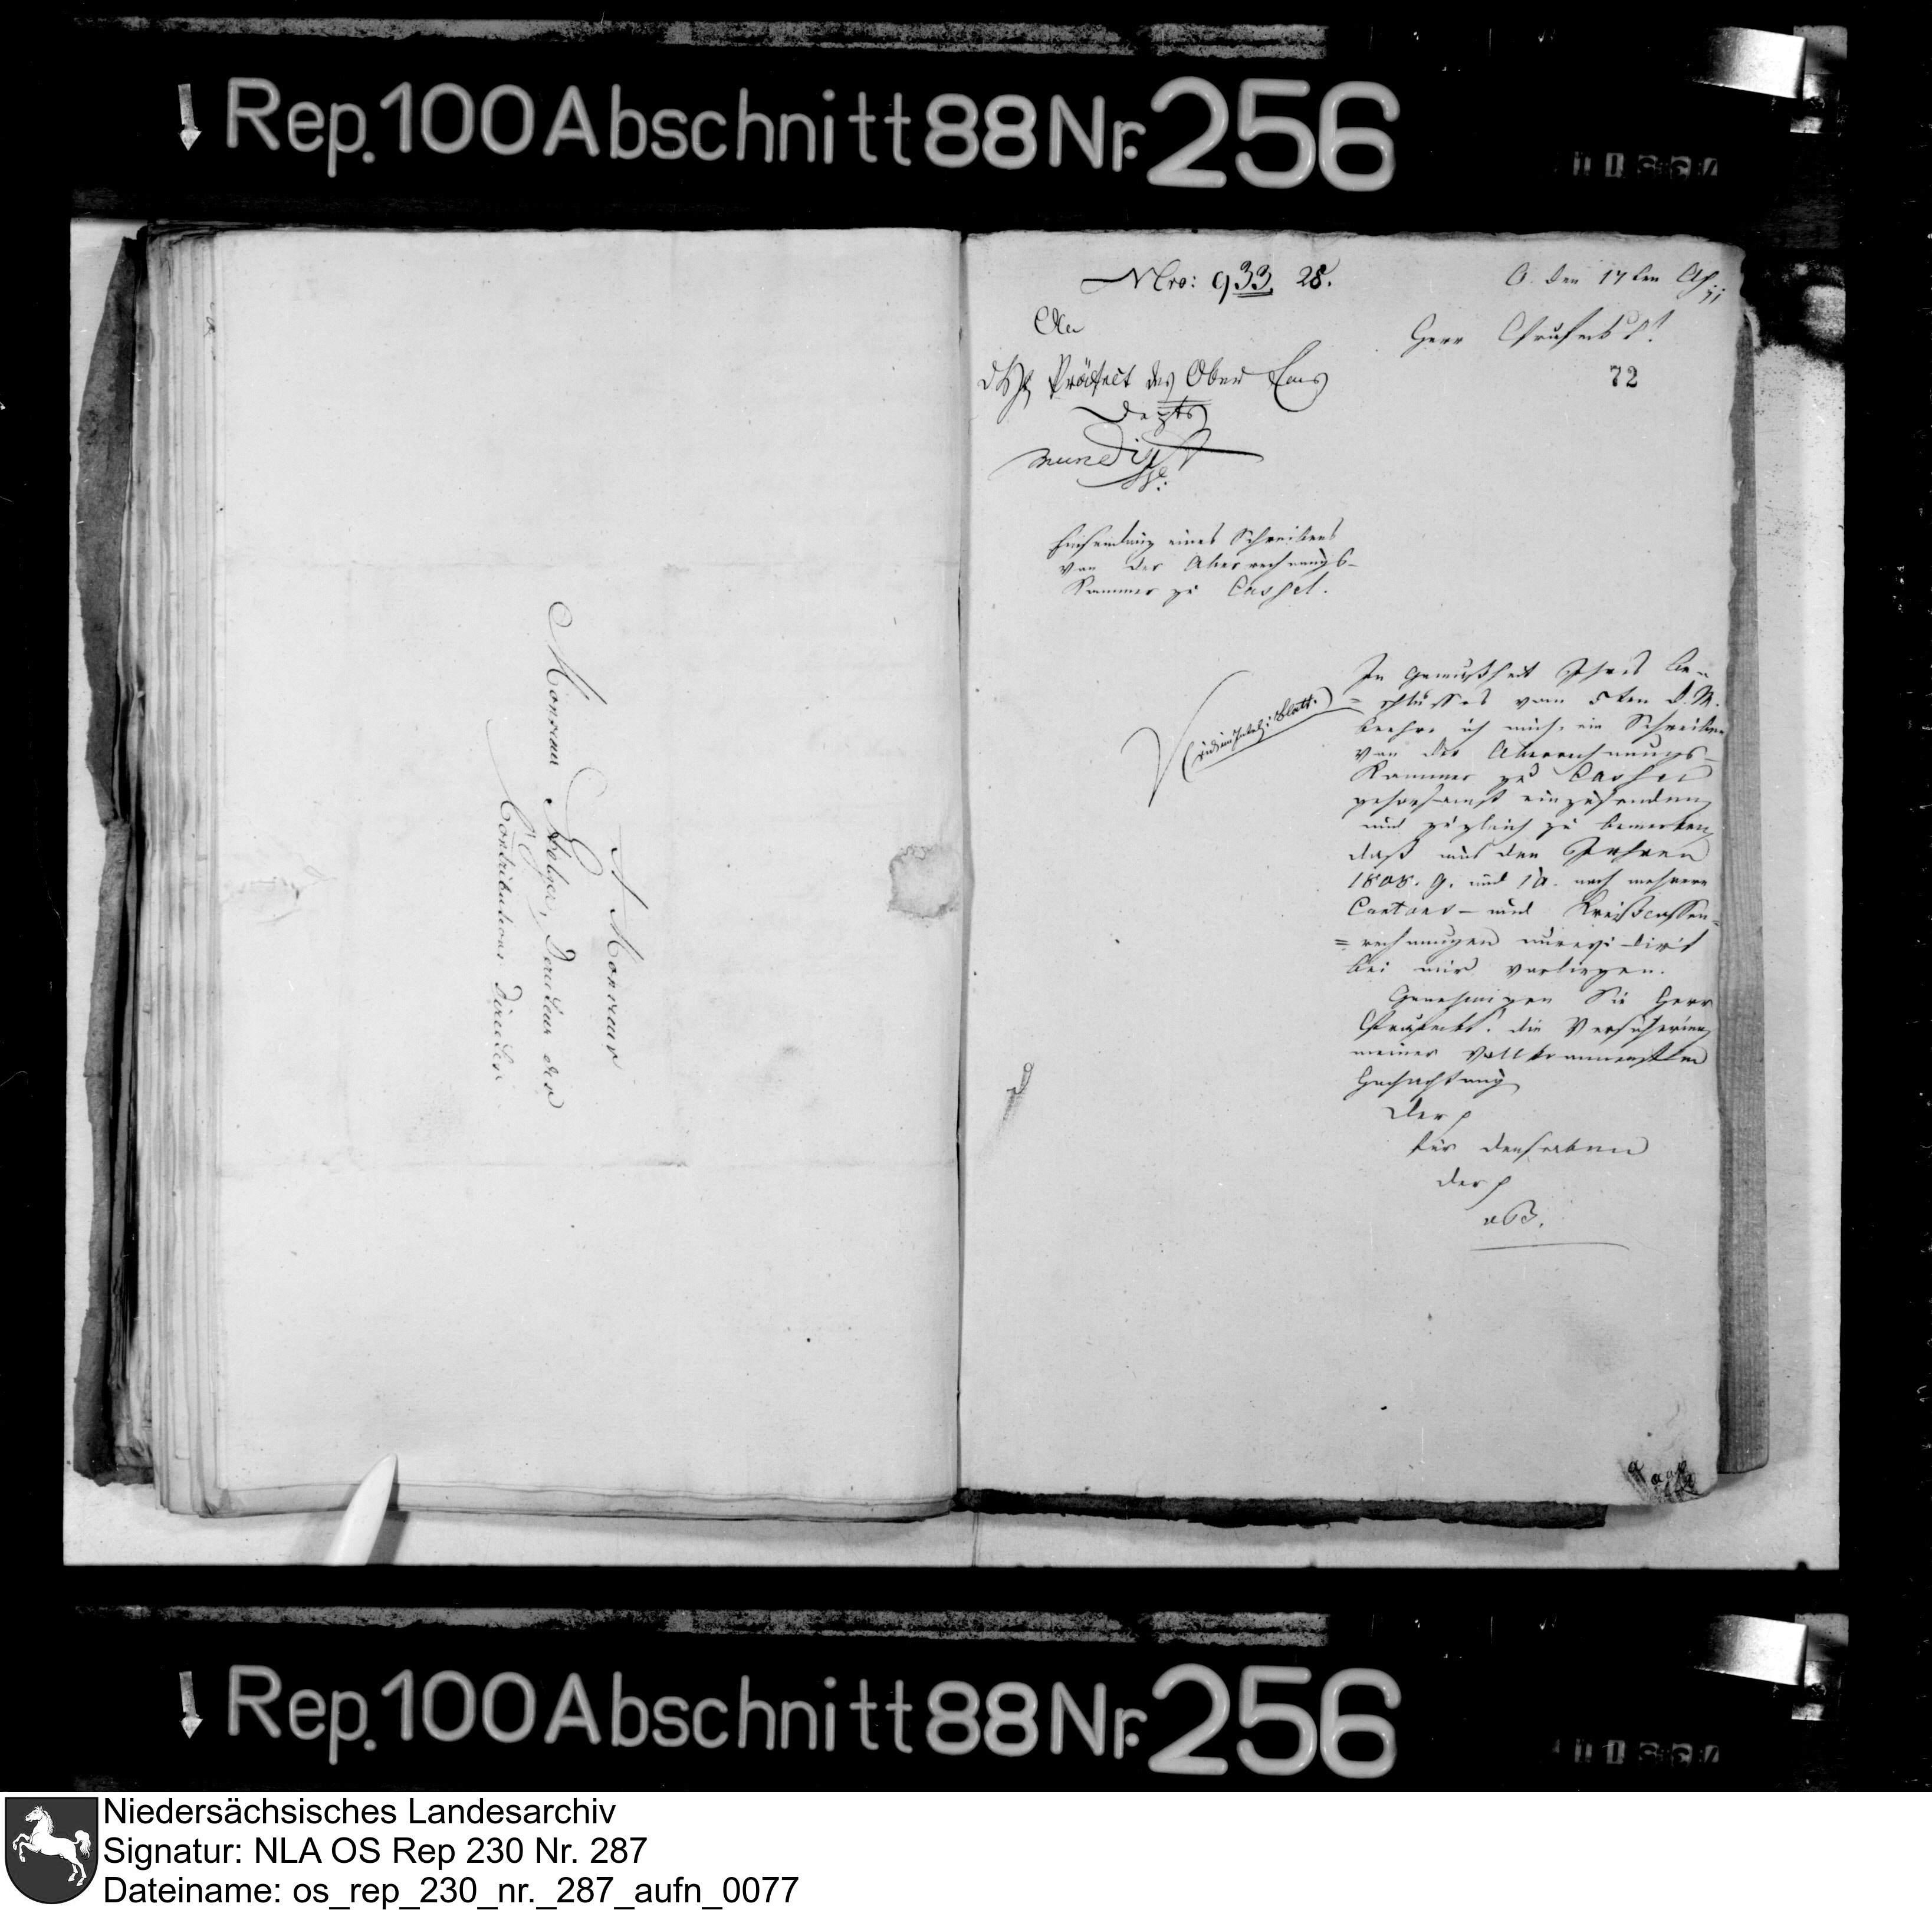 Rep. 100 Abschnitt 88 Nr. 256
A Monsieur
Monsieur Directeur des
Contributions directes
Nro: 933. 28.
O. den 17ten Ap
11
An
Herr Präfect!
72
d H Präfect des Ober Ems
Depts
mundirt
Einsendung eines Schreibens
von der Oberrechnungs-
Kammer zu Cassel.
In Gemäßheit Ihres Be-
=schlusses vom 5ten d. M.
beehre ich mich, ein Schreiben
von der Oberrechnungs-
Kammer zu Cassel
gehorsamst einzusenden
und zugleich zu bemerken
daß aus den Jahren
1808. 9. und 10. noch mehrere
Cantons- und Kreißcassen-
=rechnungen unrevidirt
bei mir vorliegen.
Genehmigen Sie Herr
Präfect! die Versicherung
meiner vollkommensten
Hochachtung
Der p
für denselben
der p
Rep. 100 Abschnitt 88 Nr. 256
Niedersächsisches Landesarchiv
Signatur: NLA OS Rep 230 Nr. 287
Dateiname: os_rep_230_nr._287_aufn_0077